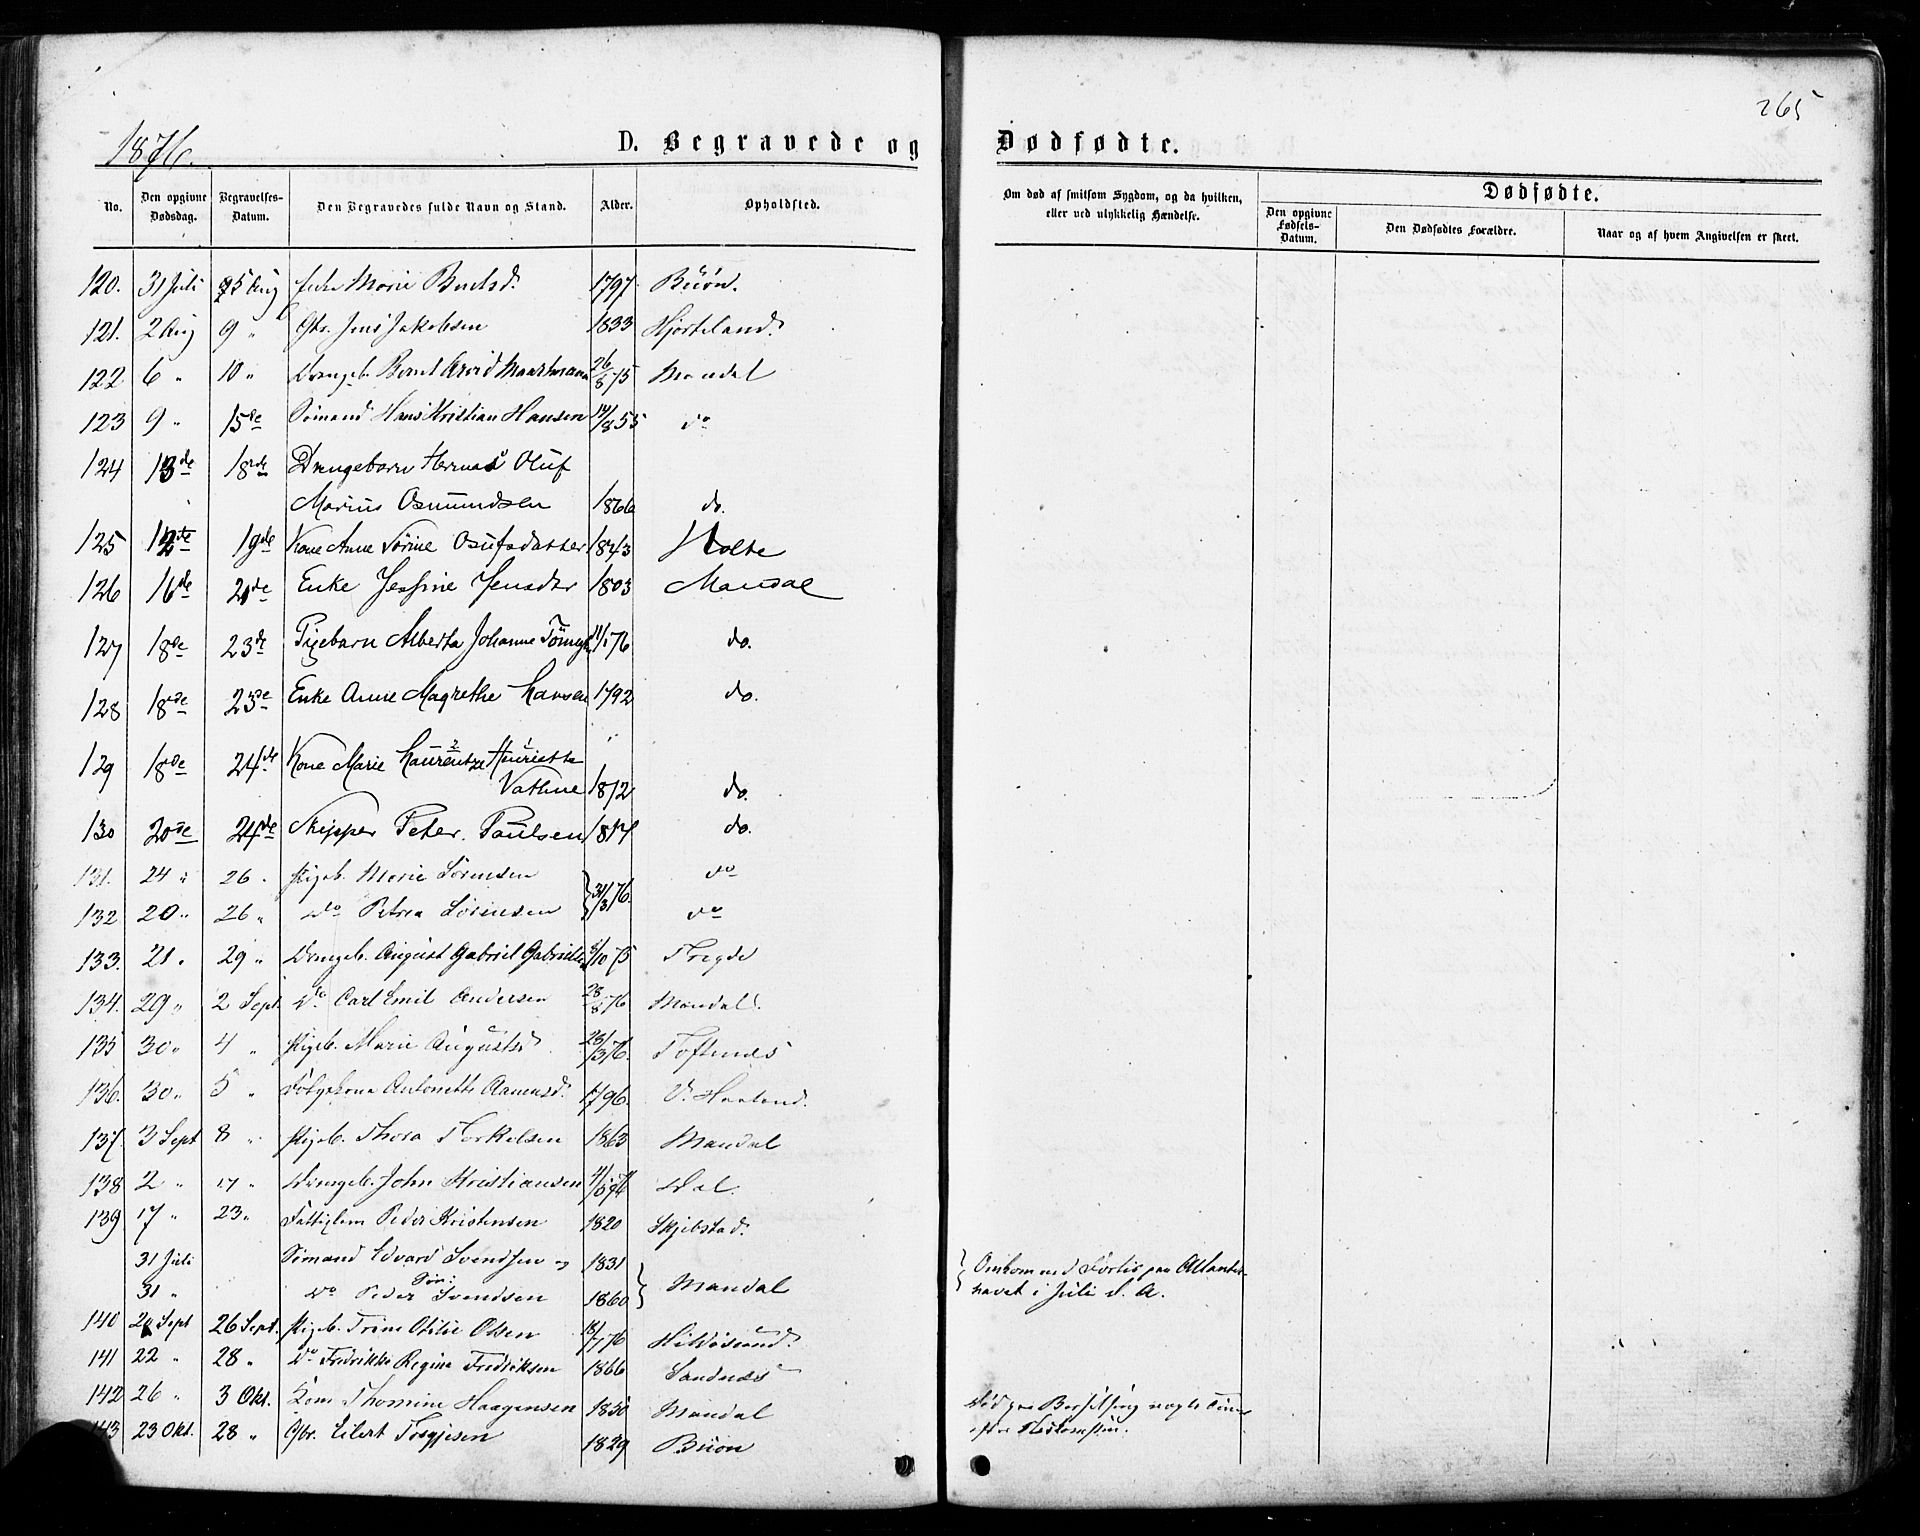 265
1876.
D. Begravede og Dødfødte.
No.
Den opgivne Dødsdag.
Begravelses-Datum.
Den Begravedes fulde Navn og Stand.
Alder.
Opholdsted.
Om død af smitsom Sygdom, og da hvilken, eller ved ulykkelig Hændelse.
Dødfødte.
Den opgivne Fødsels-Datum.
Den Dødfødtes Forældre.
Naar og af hvem Angivelsen er skeet.
120. 31 Juli 5 Aug Enke Marie 1797 Buøn.
121. 2 Aug 9 " Gbr. Jens Jakobsen 1833 Hjorteland.
122 6 " 10 " Drengeb. Bernt Arvid 26/8 75 Mandal
123 9 " 15de Sømand Hans Kristian Hansen 14/8 55 do
124 13de 18de Drengebarn Oluf
Marius Osmundsen 1866 do.
125 12te 19de Kone Anne Sørine 1843 Holte
126 16de 21de Enke Jensdtr 1803 Mandal
127 18de 23de Pigebarn Alberta Johanne 11/1 76 do.
128 18de 23de Enke Anne Magrethe Hansen 1792 do.
129 18de 24de Kone Marie Laurentze Henriette
Vathne 1812 do.
130 20de 24de Skipper Peter Paulsen 1814 do.
131. 24 " 26 " Pigeb. Marie Sørensen do
132 20 " 26 " do Petrea Sørensen 31/3 76. do
133. 21 " 29 " Drengeb. August Gabriel 75 Tregde
134. 29 " 2 Sept. do Carl Emil Andersen 28/8 76 Mandal.
135 30 " 4 " Pigeb. Marie Augustsd. 23/3 76. Toftenes
136. 30 " 5 " Antonette 1796. V. Haaland.
137. 3 Sept 8 " Pigeb. Thora Torkelsen 1863 Mandal
138 2 " " Drengeb. John Kristiansen Dal.
139 17 " 23 " Fattiglem Peder Kristensen 1820 Skjebstad.
31 Juli Sømand Edvard Svendsen og 1831
31 " do Peder Svendsen 1860 Mandal
Omkom med Fortis paa Atlanter-
havet i Juli d. A.
140 20 Sept 26 Sept. Pigeb. Trine Otilie Olsen 18/7 76 Hildøsund.
141 22 " 28 " do Fredrikke Regine Fredriksen 1866 Sandnæs
142 26 " 3 Okt. Kone Thomine Haagensen 1850 Mandal
Død paa Barselseng nogle Timer
efter
143 23 Okt. 28 " Gbr. Eilert Torgjesen 1829 Buøn